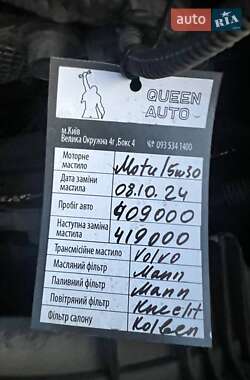 auto RIA
QUEEN
AUTO
м.Київ
Велика Окружна 4г, Бокс 4 093 534 1400
Моторне мастило Motul 5w30
Дата заміни мастила 08.10.24
Пробіг авто 409000
Наступна заміна мастила 419000
Трансмісійне мастило Volvo
Масляний фільтр Mann
Паливний фільтр Mann
Повітряний фільтр Knecht
Фільтр салону